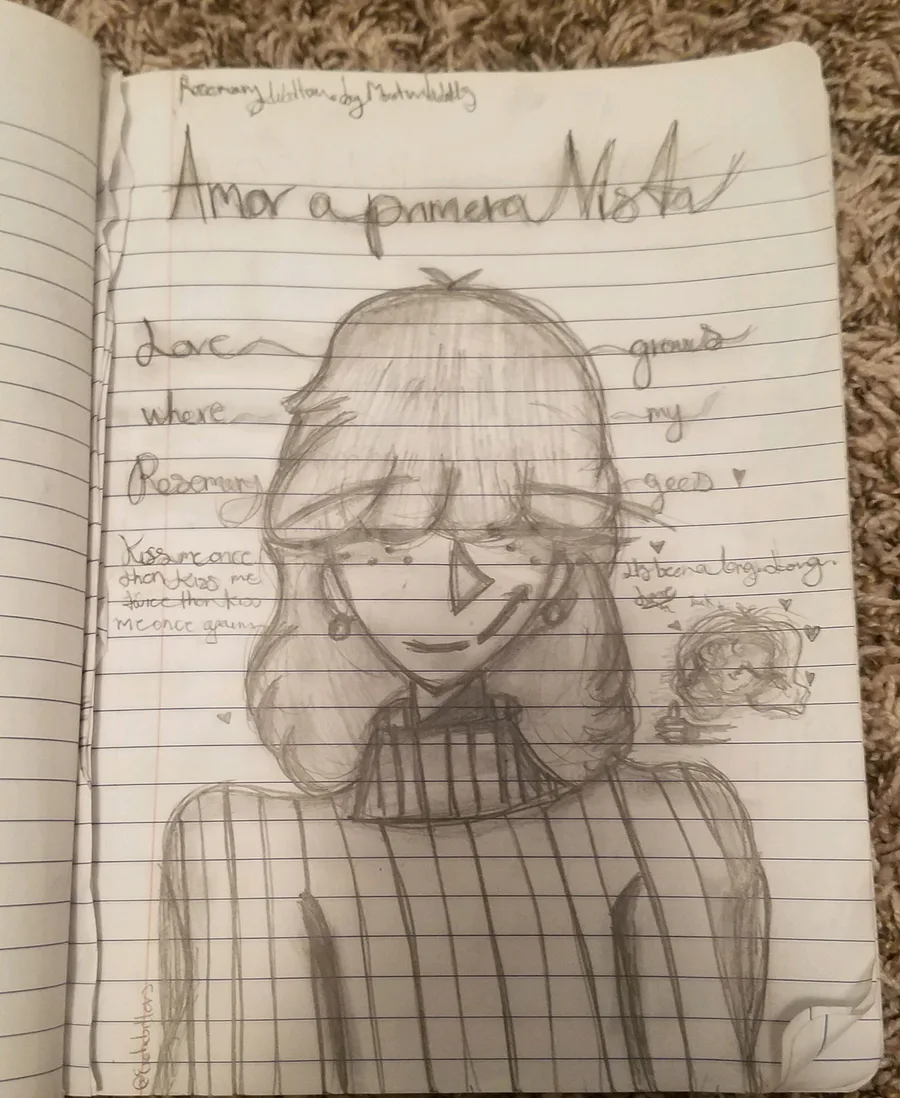 Rosemary by
Amor a primera Vista
Love grows
where my
Rosemary goes
Kiss me once
then kiss me
twice then kiss
me once again
Its been a long, long.